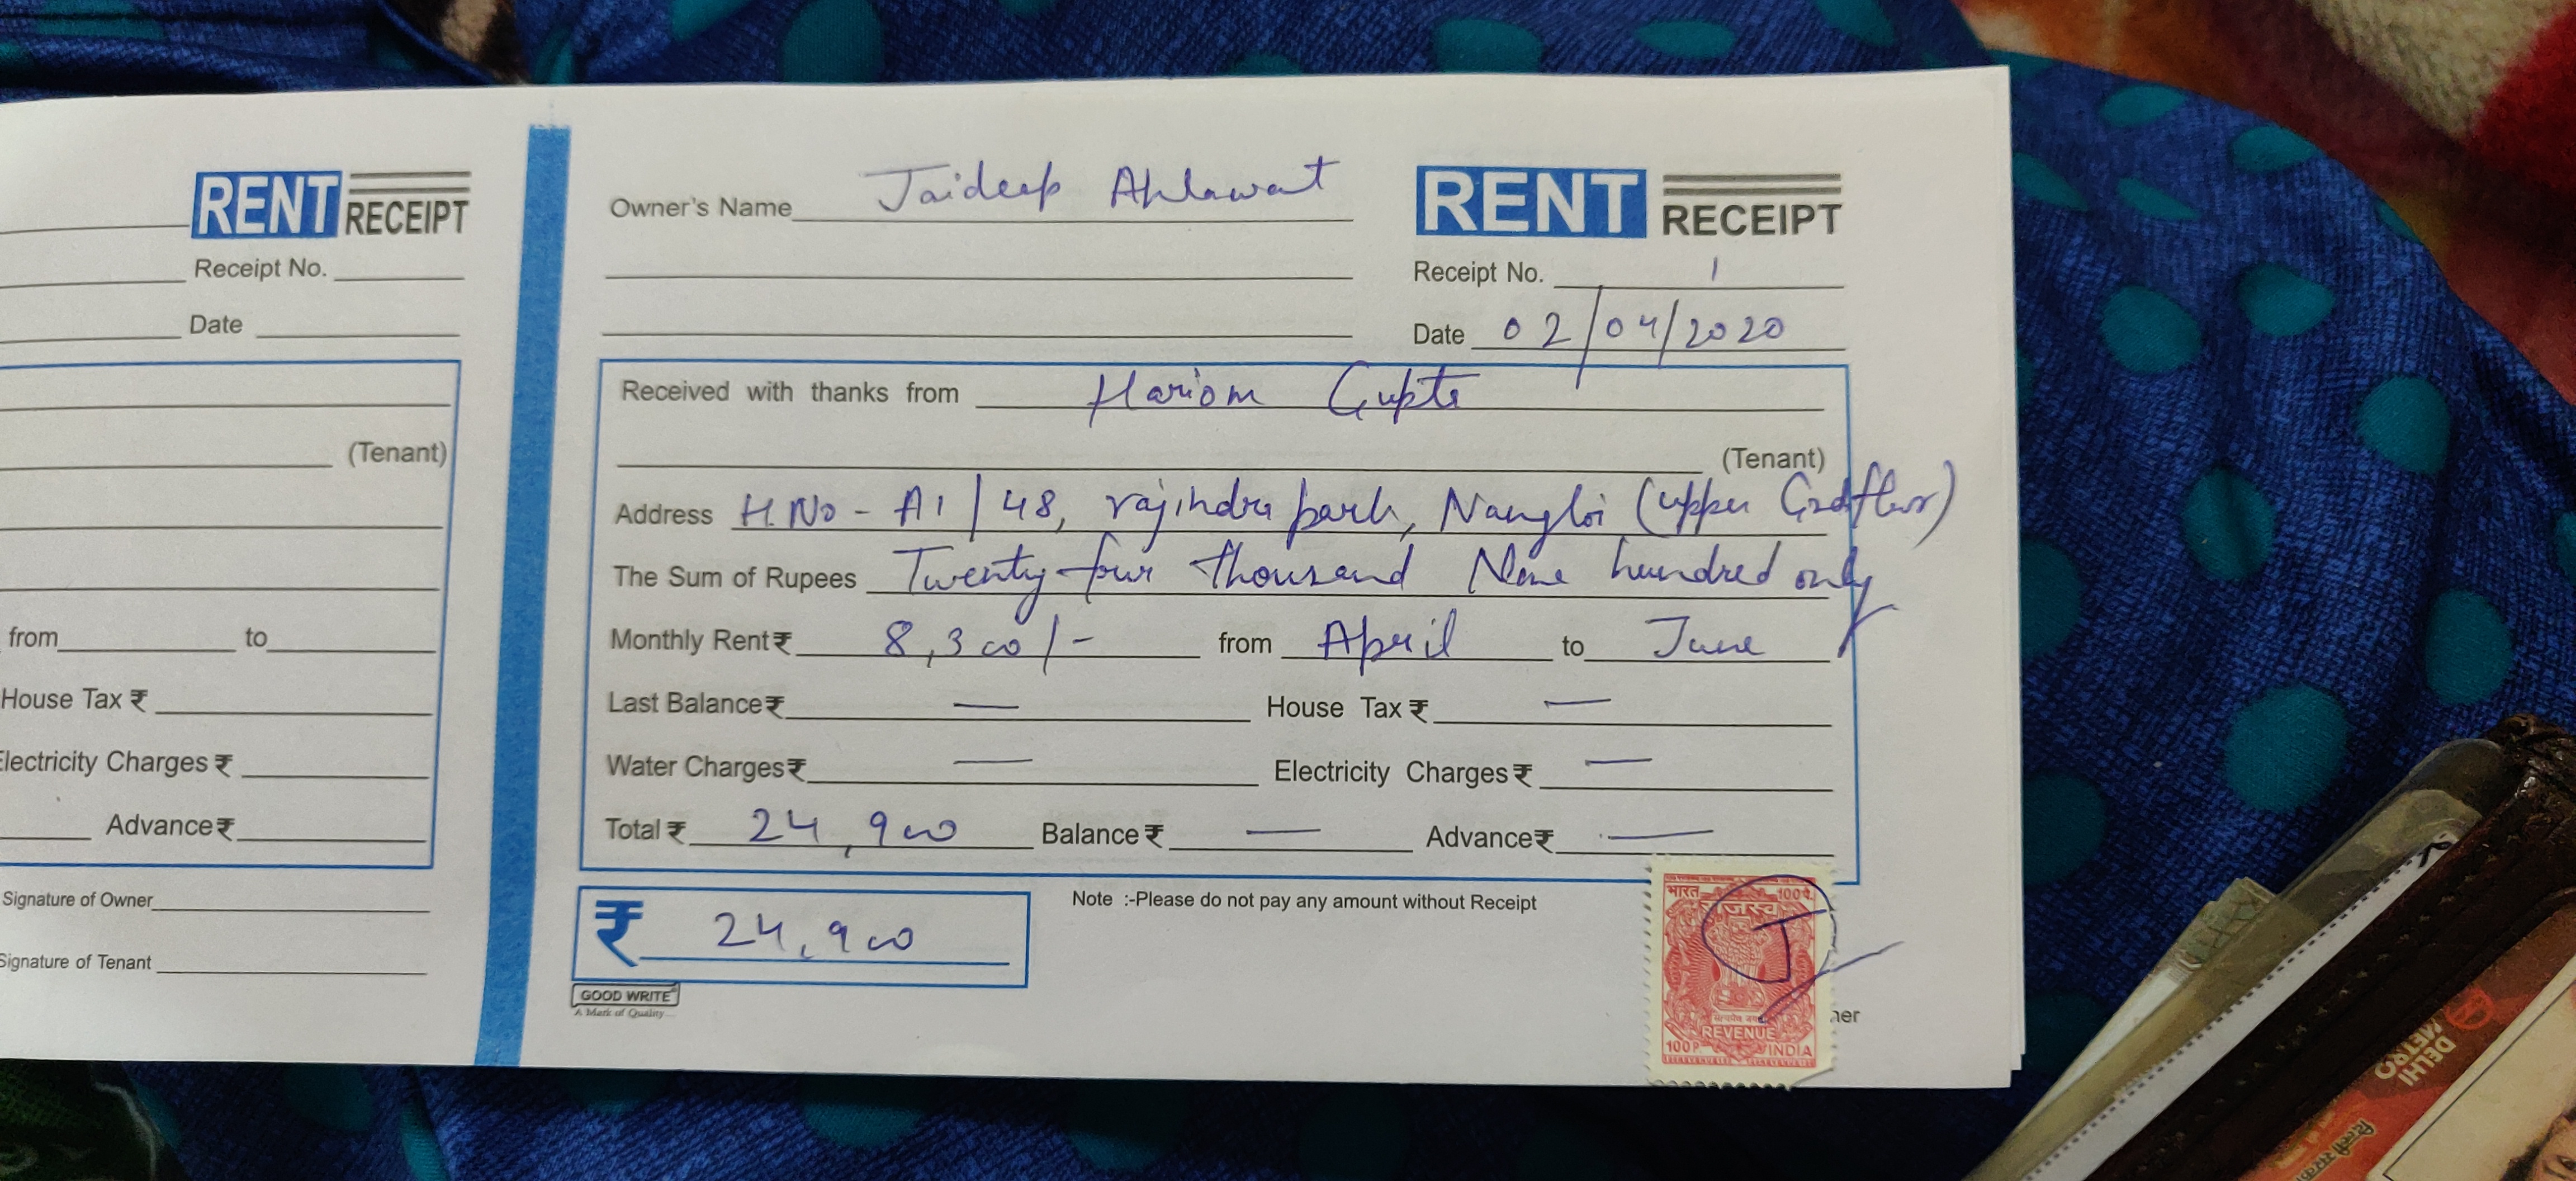 RENT RECEIPT
Receipt No.
Date
(Tenant)
from to
House Tax ₹
Electricity Charges ₹
Advance₹
Signature of Owner
Signature of Tenant
RENT RECEIPT
Owner's Name Jaideep Ahlawat
Receipt No. 1
Date 02/04/2020
Received with thanks from Hariom Gupta
(Tenant)
Address H.No - A1/48, rajindra park, Nangloi (upper Grdflur)
The Sum of Rupees Twenty four thousand Nine hundred only
Monthly Rent₹ 8,300/- from April to June
Last Balance₹ — House Tax ₹ —
Water Charges₹ — Electricity Charges ₹ —
Total ₹ 24,900 Balance₹ — Advance₹ —
₹ 24,900
Note :-Please do not pay any amount without Receipt
GOOD WRITE
A Mark of Quality...
भारत
100P. REVENUE INDIA
DELHI
METRO